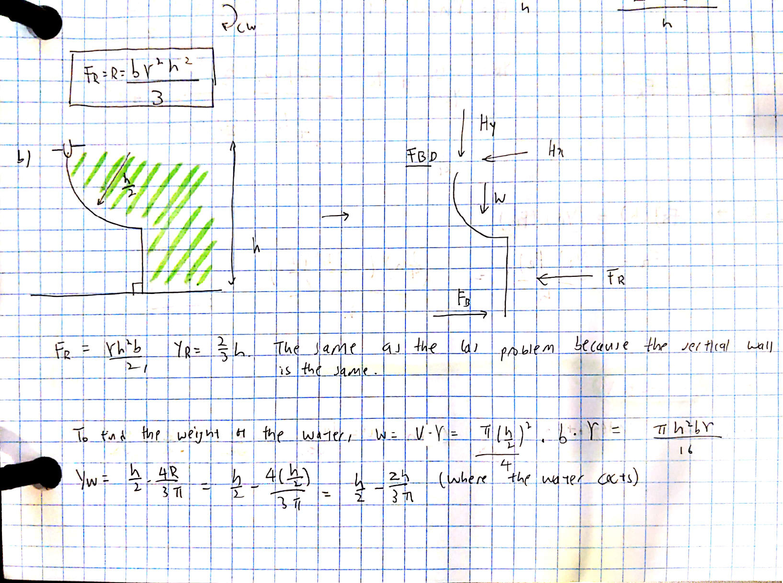 h
h
CW
F_R = R = bγ²h²/3
b)
h/2
h
FBD
Hy
Hx
W
F_B
F_R
F_R = γh²b/2, Y_R = 2/3 h. The same as the las problem because the vertical wall
is the same.
To find the weight of the water, W = V·γ = π(h/2)²/4 · b · γ = πh²bγ/16
Y_W = h/2 - 4R/3π = h/2 - 4(h/2)/3π = h/2 - 2h/3π (where the water acts)